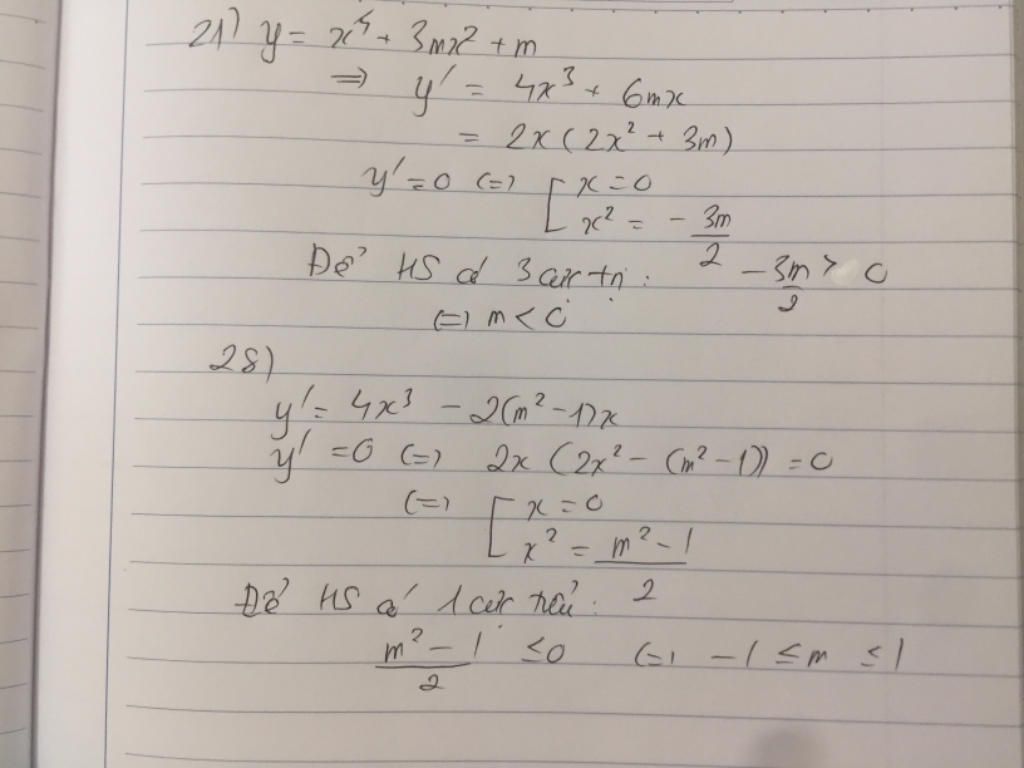 21) y = x⁴ + 3mx² + m
=> y' = 4x³ + 6mx
= 2x(2x² + 3m)
y' = 0 (=) [ x = 0
x² = - 3m/2
Để HS có 3 cực trị : - 3m/2 > 0
(=) m < 0
28)
y' = 4x³ - 2(m² - 1)x
y' = 0 (=) 2x (2x² - (m² - 1)) = 0
(=) [ x = 0
x² = m² - 1/2
Để HS có 1 cực tiểu :
m² - 1/2 ≤ 0 (=) -1 ≤ m ≤ 1